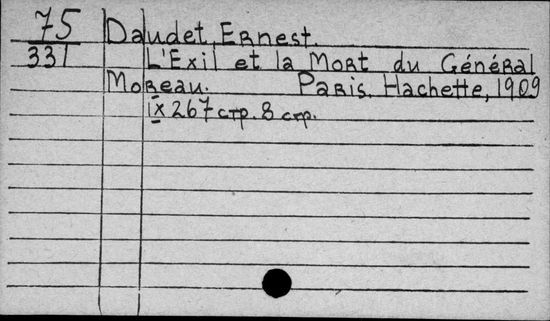 75 Daudet, Ernest.
331 L'Exil et la Mort du Général
Moreau. Paris. Hachette, 1909
IX 267 стр. 8 стр.